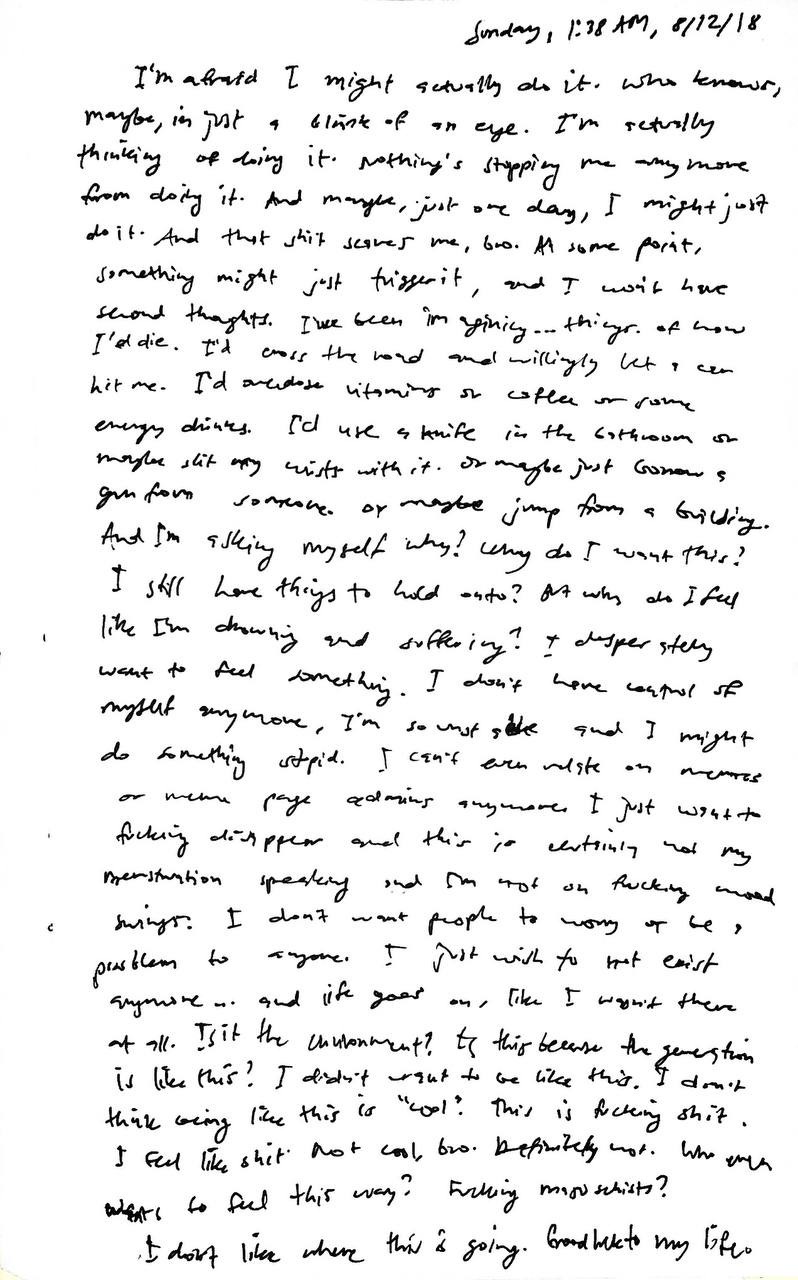 Sunday, 1:38 AM, 8/12/18
I'm afraid I might actually do it. Who knows,
maybe, in just a blink of an eye. I'm actually
thinking of doing it. Nothing's stopping me anymore
from doing it. And maybe, just one day, I might just
do it. And that shit scares me, bro. At some point,
something might just trigger it, and I won't have
second thoughts. I've been imagining... things. of how
I'd die. I'd cross the road and willingly let a car
hit me. I'd overdose vitamins or coffee or some
energy drinks. I'd use a knife in the bathroom or
maybe slit my wrists with it. Or maybe just borrow a
gun from someone. or maybe jump from a building.
And I'm asking myself why? Why do I want this?
I still have things to hold onto? But why do I feel
like I'm drowning and suffering? I desperately
want to feel something. I don't have control of
myself anymore, I'm so unstable and I might
do something stupid. I can't even relate on memes
or meme page admins anymore. I just want to
fucking disappear and this is certainly not my
menstruation speaking and I'm not on fucking mood
swings. I don't want people to worry or be a
problem to anyone. I just wish to not exist
anymore... and life goes on, like I wasn't there
at all. Is it the environment? Is this because the generation
is like this? I didn't want to be like this. I don't
think being like this is "cool". This is fucking shit.
I feel like shit. Not cool, bro. Definitely not. Who even
wants to feel this way? Fucking masochists?
I don't like where this is going. Good luck to my life.